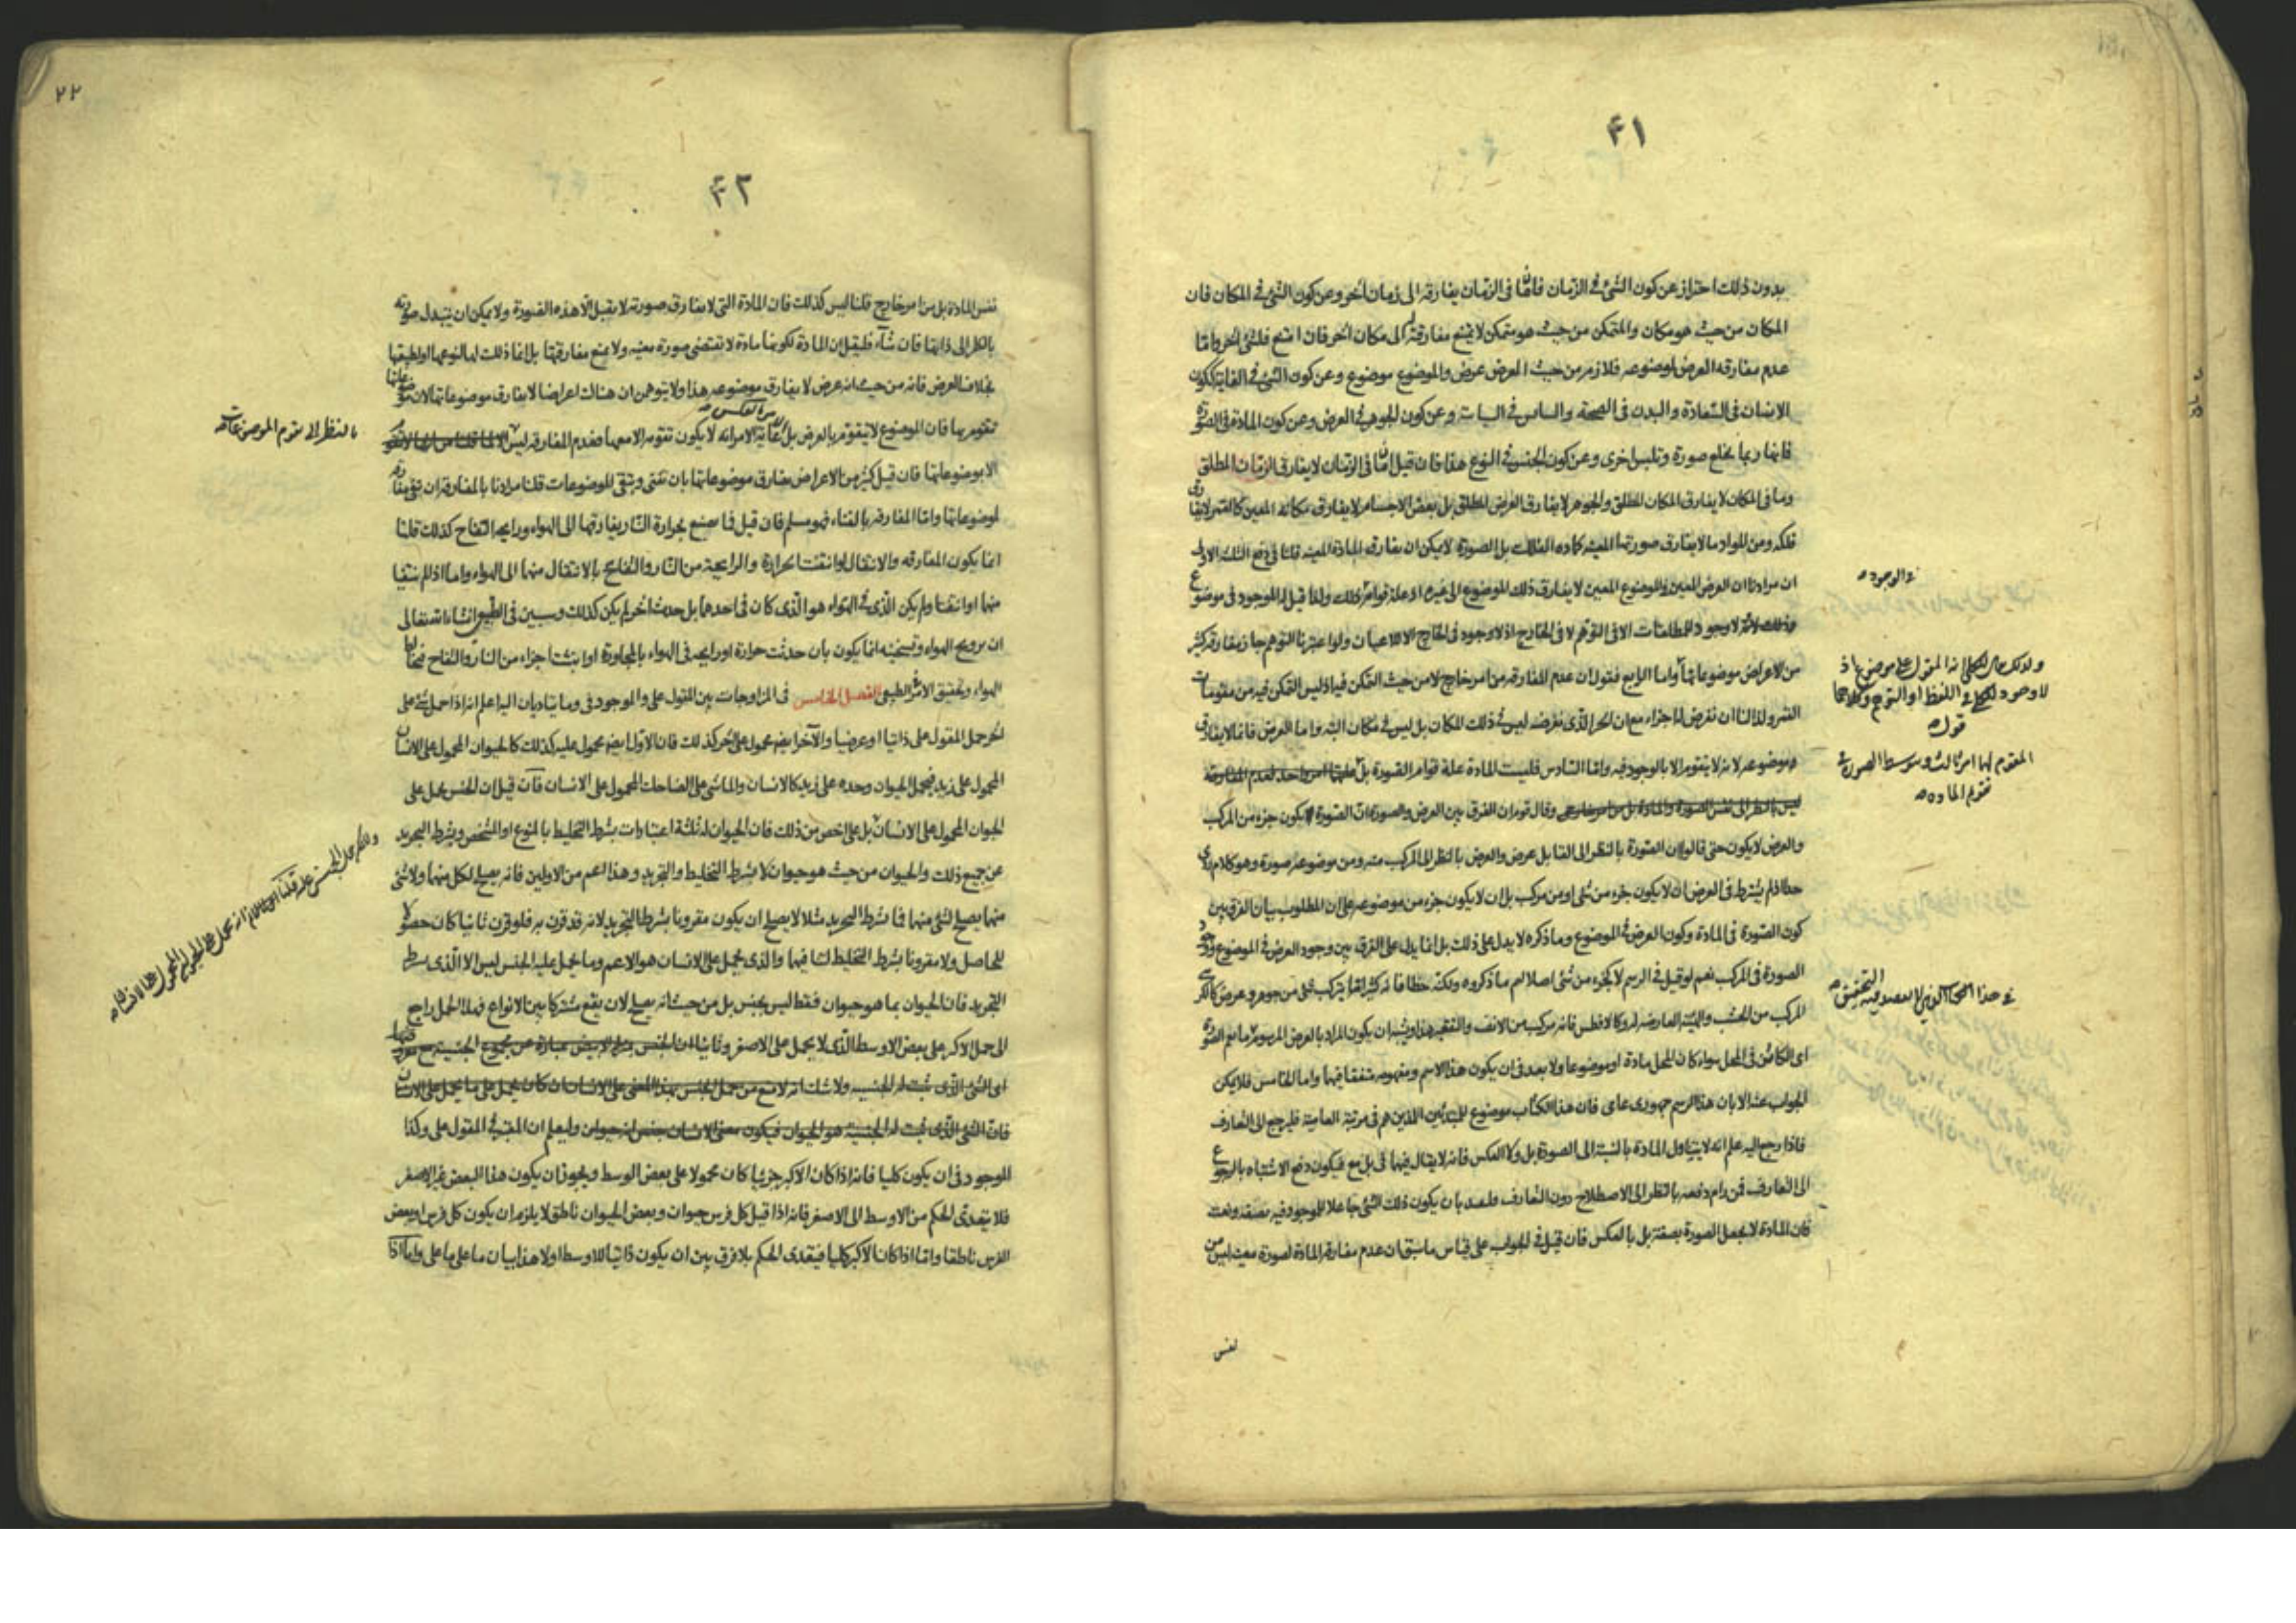 ٤١
بدون ذلك احتراز عن كون الشئ فى الزمان فان ما فى الزمان يفارقه الى زمان آخر وعن كون الشئ فى المكان فان
المكان من حيث هو مكان والمتمكن من حيث هو متمكن لا يمتنع مفارقته الى مكان آخر فان امتنع فلشئ آخر واما
عدم مفارقه العرض لموضوعه فلازم من حيث العرض عرض والموضوع موضوع وعن كون الشئ فى الغاية ككون
الانسان فى السعادة والبدن فى الصحة والسايس فى السياسة وعن كون الجوهر فى العرض وعن كون المادة فى الصورة
فانها ربما يخلع صورة وتلبس اخرى وعن كون الجنس فى النوع هذا فان قيل ما فى الزمان لا يفارق الزمان المطلق
وما فى المكان لا يفارق المكان المطلق والجوهر لا يفارق العرض المطلق بل بعض الاجسام لا يفارق مكانه المعين كالقمر لا يفارق
فلكه ومن المواد ما لا يفارق صورتها المعينه كماده الفلك بل الصورة لا يمكن ان يفارق المادة المعينه قلنا فى دفع الثلثه الاول
ان مرادنا ان العرض المعين والموضوع المعين لا يفارق ذلك الموضوع الى غيره اذ علة قوامه ذلك ولذا قيل له الموجود فى موضوع
وذلك لانه لا وجود للمطلقات الا فى التوهم لا فى الخارج اذ لا وجود فى الخارج الا للاعيان ولو اعتبرنا التوهم جاز مفارقه كثير
من الاعراض موضوعاتها واما الرابع فنقول ان عدم المفارقه من امر خارج لا من حيث التمكن فيه اذ ليس التمكن فيه من مقومات
القمر ولذا لنا ان نفرض لها جزاء مع ان الجزء الذى نفرضه ليس فى ذلك المكان بل ليس فى مكان البته واما العرض فانما لا يفارق
موضوعه لانه لا يتقوم الا بالوجود فيه واما السادس فليست المادة علة قوام الصورة بل علتها امر واحد لعدم المفارقه
ليس بالنظر الى نفس الصورة والمادة بل من امر خارجى وقال قوم ان الفرق بين العرض والصورة ان الصورة يكون جزء من المركب
والعرض لا يكون حتى قالوا ان الصورة بالنظر الى القابل عرض والعرض بالنظر الى المركب منه ومن موضوعه صورة وهو كلام ردى
جدا فلم يشترط فى العرض ان لا يكون جزء من شئ او من مركب بل ان لا يكون جزء من موضوعه على ان المطلوب بيان الفرق بين
كون الصورة فى المادة وكون العرض فى الموضوع وما ذكره لا يدل على ذلك بل انما يدل على الفرق بين وجود العرض فى الموضوع ووجود
الصورة فى المركب نعم لو قيل فى الرسم لا كجزء من شئ اصلا لم ما ذكروه ولكنه خطا فانه كثيرا ما يتركب شئ من جوهر وعرض كالكرسى
المركب من الخشب والهيئه العارضه له وكالافطس فانه مركب من الانف والتقعير هذا ويشبه ان يكون المراد بالعرض المرسوم ما يعم الصورة
اى الكائن فى المحل سواء كان المحل مادة او موضوعا ولا بعد فى ان يكون هذا الاسم ومفهومه متفقا فيهما واما الخامس فلا يمكن
الجواب عنه الا بان هذا الرسم جمهورى عامى فان هذا الكتاب موضوع للمبتدئين الذين هم فى مرتبة العامية فليرجع الى التعارف
فاذا رجع اليه علم انه لا يتناول المادة بالنسبة الى الصورة بل ولا العكس فانه لا يقال فيهما فى بل مع فيكون دفع الاشتباه بالرجوع
الى التعارف فمن رام دفعه بالنظر الى الاصطلاح دون التعارف فلعمد بان يكون ذلك الشئ جاعلا للموجود فيه بصفه ونعت
فان المادة لا يجعل الصورة بصفة بل بالعكس فان قيل فى الجواب على قياس ما سبق ان عدم مفارقة المادة لصورة معينه ليس من
نفس
فى الوجود
وكذلك حال الكلى انه المقول على موضوع اذ
لا وجود للكلى فى اللفظ او التوهم وكلاهما
قول
المقوم لها امر ثالث وبتوسط الصورة
تقوم المادة
فى هذا الكتاب الذى لا يقصد فيه التحقيق
٤٢
٢٢
نفس المادة بل من امر خارج قلنا ليس كذلك فان المادة التى لا يفارق صورته لا يقبل الا هذه الصورة ولا يمكن ان يتبدل صورته
بالنظر الى ذاتها فان شآء فليقل ان المادة لكونها مادة لا تقتضى صورة معينه ولا يمنع مفارقتها بل انما ذلك لها لنوعها او لطبيعتها
بخلاف العرض فانه من حيث انه عرض لا يفارق موضوعه هذا ولا يتوهمن ان هنالك اعراضا لا يفارق موضوعاتها لان موضوعاتها
تتقوم بها فان الموضوع لا يتقوم بالعرض بل بالعكس غاية الامر انه لا يكون تقومه الا معها فعدم المفارقه ليس
الا بموضوعاتها فان قيل كثير من الاعراض يفارق موضوعاتها بان تفنى ويبقى الموضوعات قلنا مرادنا بالمفارقه ان تبقى مفارقه
لموضوعاتها واما المفارقه بالفناء فهو مسلم فان قيل فما تصنع بحرارة النار يفارقها الى الهواء ورايحه التفاح كذلك قلنا
انما يكون المفارقه والانتقال لو انتفت الحرارة والرايحة من النار والتفاح بالانتقال منهما الى الهواء واما اذا لم ينتفيا
منهما او انتفتا ولم يكن الذى فى الهواء هو الذى كان فى احدهما بل حدث آخر لم يكن كذلك وسيبين فى الطبيعى انشاء الله تعالى
ان ترويح الهواء وتسخينه انما يكون بان حدثت حرارة او رايحه فى الهواء بالمجاورة او انبثت اجزاء من النار والتفاح فخالطا
الهواء وتحقيق الامر فى الطبيعى الفصل الخامس فى المزاوجات بين المقول على والموجود فى وما يتاديان اليه اعلم انه اذا حمل شئ على
آخر حمل المقول على ذاتيا او عرضيا والآخر ايضا محمول على آخر كذلك فان الاول ايضا محمول عليه كذلك كالحيوان المحمول على الانسان
المحمول على زيد فيحمل الحيوان وحده على زيد كالانسان والماشى على الضاحك المحمول على الانسان فان قيل ان الجنس يحمل على
الحيوان المحمول على الانسان بل على اخص من ذلك فان الحيوان له ثلثة اعتبارات بشرط التخليط بالنوع او الشخص وبشرط التجريد
عن جميع ذلك والحيوان من حيث هو حيوان لا بشرط التخليط والتجريد وهذا اعم من الاولين فانه يصلح لكل منهما ولا شئ
منهما يصلح لشئ منهما فما بشرط التجريد مثلا لا يصلح ان يكون مقرونا بشرط التجريد لانه قد قرن به فلو قرن ثانيا كان حصولا
للحاصل ولا مقرونا بشرط التخليط لتنافيهما والذى يحمل على الانسان هو الاعم وما يحمل عليه الجنس ليس الا الذى بشرط
التجريد فان الحيوان بما هو حيوان فقط ليس بجنس بل من حيث انه يصلح لان يقع مشتركا بين الانواع فهذا الحمل راجع
الى حمل الاكبر على بعض الاوسط الذى لا يحمل على الاصغر وثانيا ان الجنس بمنزلة الابيض عبارة عن مجموع الجنسية مع معروضها
اى الشئ الذى ثبت له الجنسيه ولا شك انه لا منع من حمل الجنس بهذا المعنى على الانسان كان يحمل على ما يحمل على الانسان
فان الشئ الذى ثبت له الجنسية هو الحيوان فيكون معنى الانسان جنس انه حيوان وليعلم ان المعتبر فى المقول على وكذا
الموجود فى ان يكون كليا فانه اذا كان الاكبر جزئيا كان محمولا على بعض الوسط ويجوز ان يكون هذا البعض غير الاصغر
فلا يتعدى الحكم من الاوسط الى الاصغر فانه اذا قيل كل فرس حيوان وبعض الحيوان ناطق لا يلزم ان يكون كل فرس او بعض
الفرس ناطقا واما اذا كان الاكبر كليا فيتعدى الحكم بلا فرق بين ان يكون ذاتيا للاوسط اولا هذا بيان ما على ما على واما اذا
بالنظر الى تقوم الموضوعات